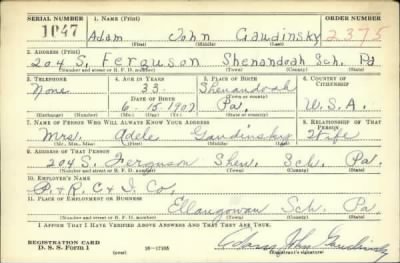 SERIAL NUMBER 1. NAME (Print) ORDER NUMBER
1047 Adam John Gaudinsky 2375
(First) (Middle) (Last)
2. ADDRESS (Print)
204 S. Ferguson Shenandoah Sch. Pa
(Number and street or R. F. D. number) (Town) (County) (State)
3. TELEPHONE 4. AGE IN YEARS 5. PLACE OF BIRTH 6. COUNTRY OF CITIZENSHIP
None 33 Shenandoah
DATE OF BIRTH (Town or county)
6-15-1907 Pa. U.S.A.
(Exchange) (Number) (Mo.) (Day) (Yr.) (State or country)
7. NAME OF PERSON WHO WILL ALWAYS KNOW YOUR ADDRESS 8. RELATIONSHIP OF THAT PERSON
Mrs. Adele Gaudinsky Wife
(Mr., Mrs., Miss) (First) (Middle) (Last)
9. ADDRESS OF THAT PERSON
204 S. Ferguson Shen. Sch. Pa.
(Number and street or R. F. D. number) (Town) (County) (State)
10. EMPLOYER'S NAME
P. & R. C & I. Co.
11. PLACE OF EMPLOYMENT OR BUSINESS
Ellangowan Sch. Pa.
(Number and street or R. F. D. number) (Town) (County) (State)
I AFFIRM THAT I HAVE VERIFIED ABOVE ANSWERS AND THAT THEY ARE TRUE.
REGISTRATION CARD
D. S. S. Form 1 (over) 16-17105 Adam John Gaudinsky